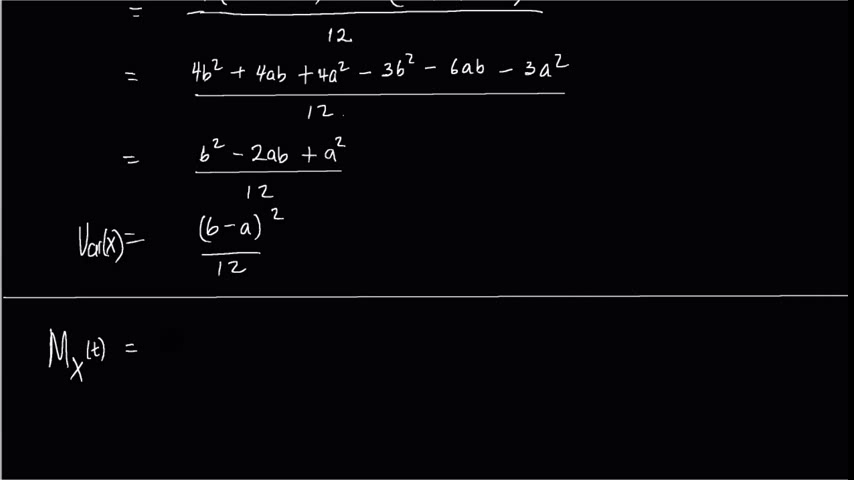 =
12
= 4b² + 4ab + 4a² − 3b² − 6ab − 3a²
12
= b² − 2ab + a²
12
Var(x) = (b − a)²
12
M_X(t) =